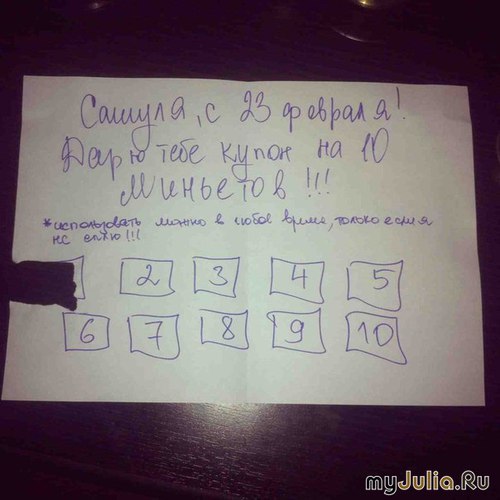 Сашуля, с 23 февраля!
Дарю тебе купон на 10
миньетов!!!
*использовать можно в любое время, только если я
не сплю!!!
2 3 4 5
6 7 8 9 10
myJulia.Ru